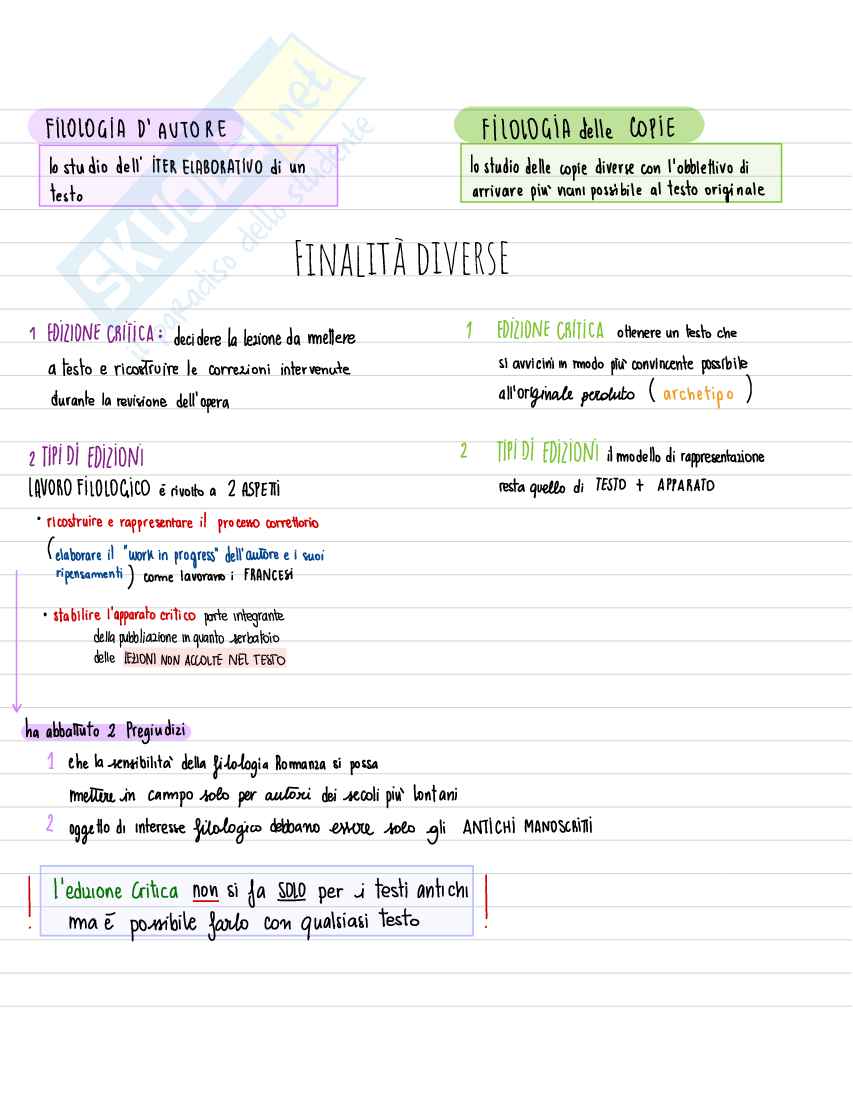 FILOLOGIA D'AUTORE
lo studio dell' ITER ELABORATIVO di un
testo
FILOLOGIA delle COPIE
lo studio delle copie diverse con l'obbiettivo di
arrivare più vicini possibile al testo originale
FINALITÀ DIVERSE
1 EDIZIONE CRITICA: decidere la lezione da mettere
a testo e ricostruire le correzioni intervenute
durante la revisione dell'opera
2 TIPI DI EDIZIONI
LAVORO FILOLOGICO è rivolto a 2 ASPETTI
• ricostruire e rappresentare il processo correttorio
(elaborare il "work in progress" dell'autore e i suoi
ripensamenti) come lavorano i FRANCESI
• stabilire l'apparato critico parte integrante
della pubblicazione in quanto serbatoio
delle LEZIONI NON ACCOLTE NEL TESTO
1 EDIZIONE CRITICA ottenere un testo che
si avvicini in modo più convincente possibile
all'originale perduto (archetipo)
2 TIPI DI EDIZIONI il modello di rappresentazione
resta quello di TESTO + APPARATO
ha abbattuto 2 Pregiudizi
1 che la sensibilità della filologia Romanza si possa
mettere in campo solo per autori dei secoli più lontani
2 oggetto di interesse filologico debbano essere solo gli ANTICHI MANOSCRITTI
! l'edizione Critica non si fa SOLO per i testi antichi !
ma è possibile farlo con qualsiasi testo
SKUOLA.net
il paradiso dello studente